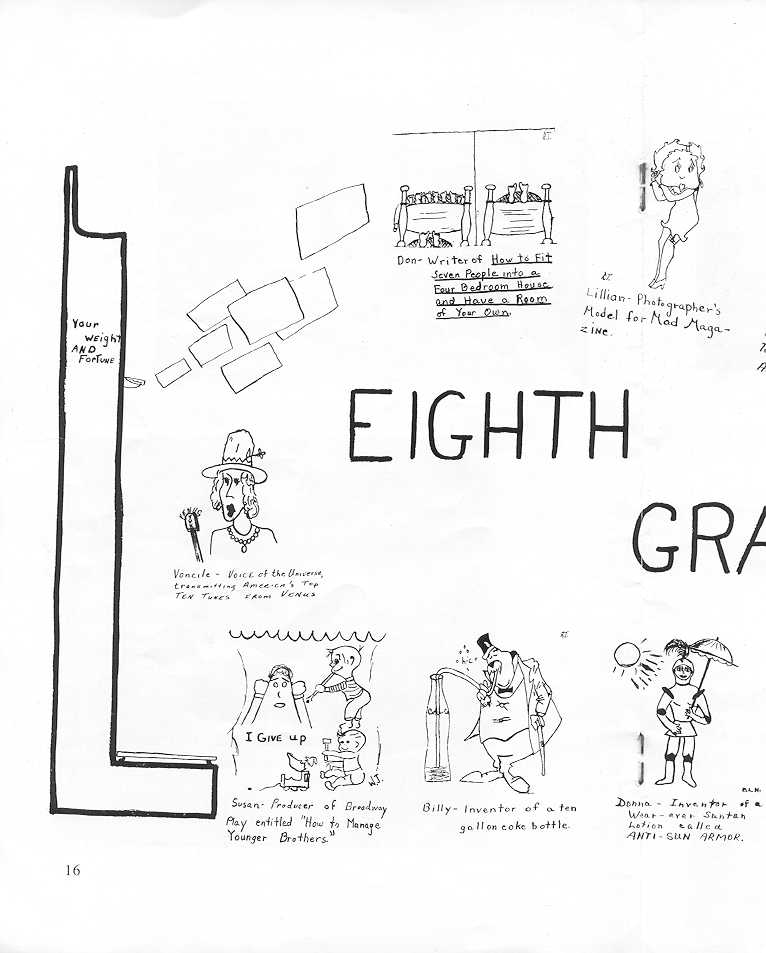 Don- Writer of How to Fit
Seven People into a
Four Bedroom House
and Have a Room
of Your Own.
Lillian- Photographer's
Model for Mad Maga-
zine.
Your
weight
AND
FORTUNE
EIGHTH
GRA
VENUS
Voncile - VOICE of the Universe,
transmitting America's Top
TEN TUNES FROM VENUS
I GIVE up
W.J.
Susan- Producer of Broadway
Play entitled "How to Manage
Younger Brothers."
hic
Billy- Inventor of a ten
gallon coke bottle.
B.L.H.
Donna - Inventor of a
Wear-ever Suntan
Lotion called
ANTI-SUN ARMOR.
16